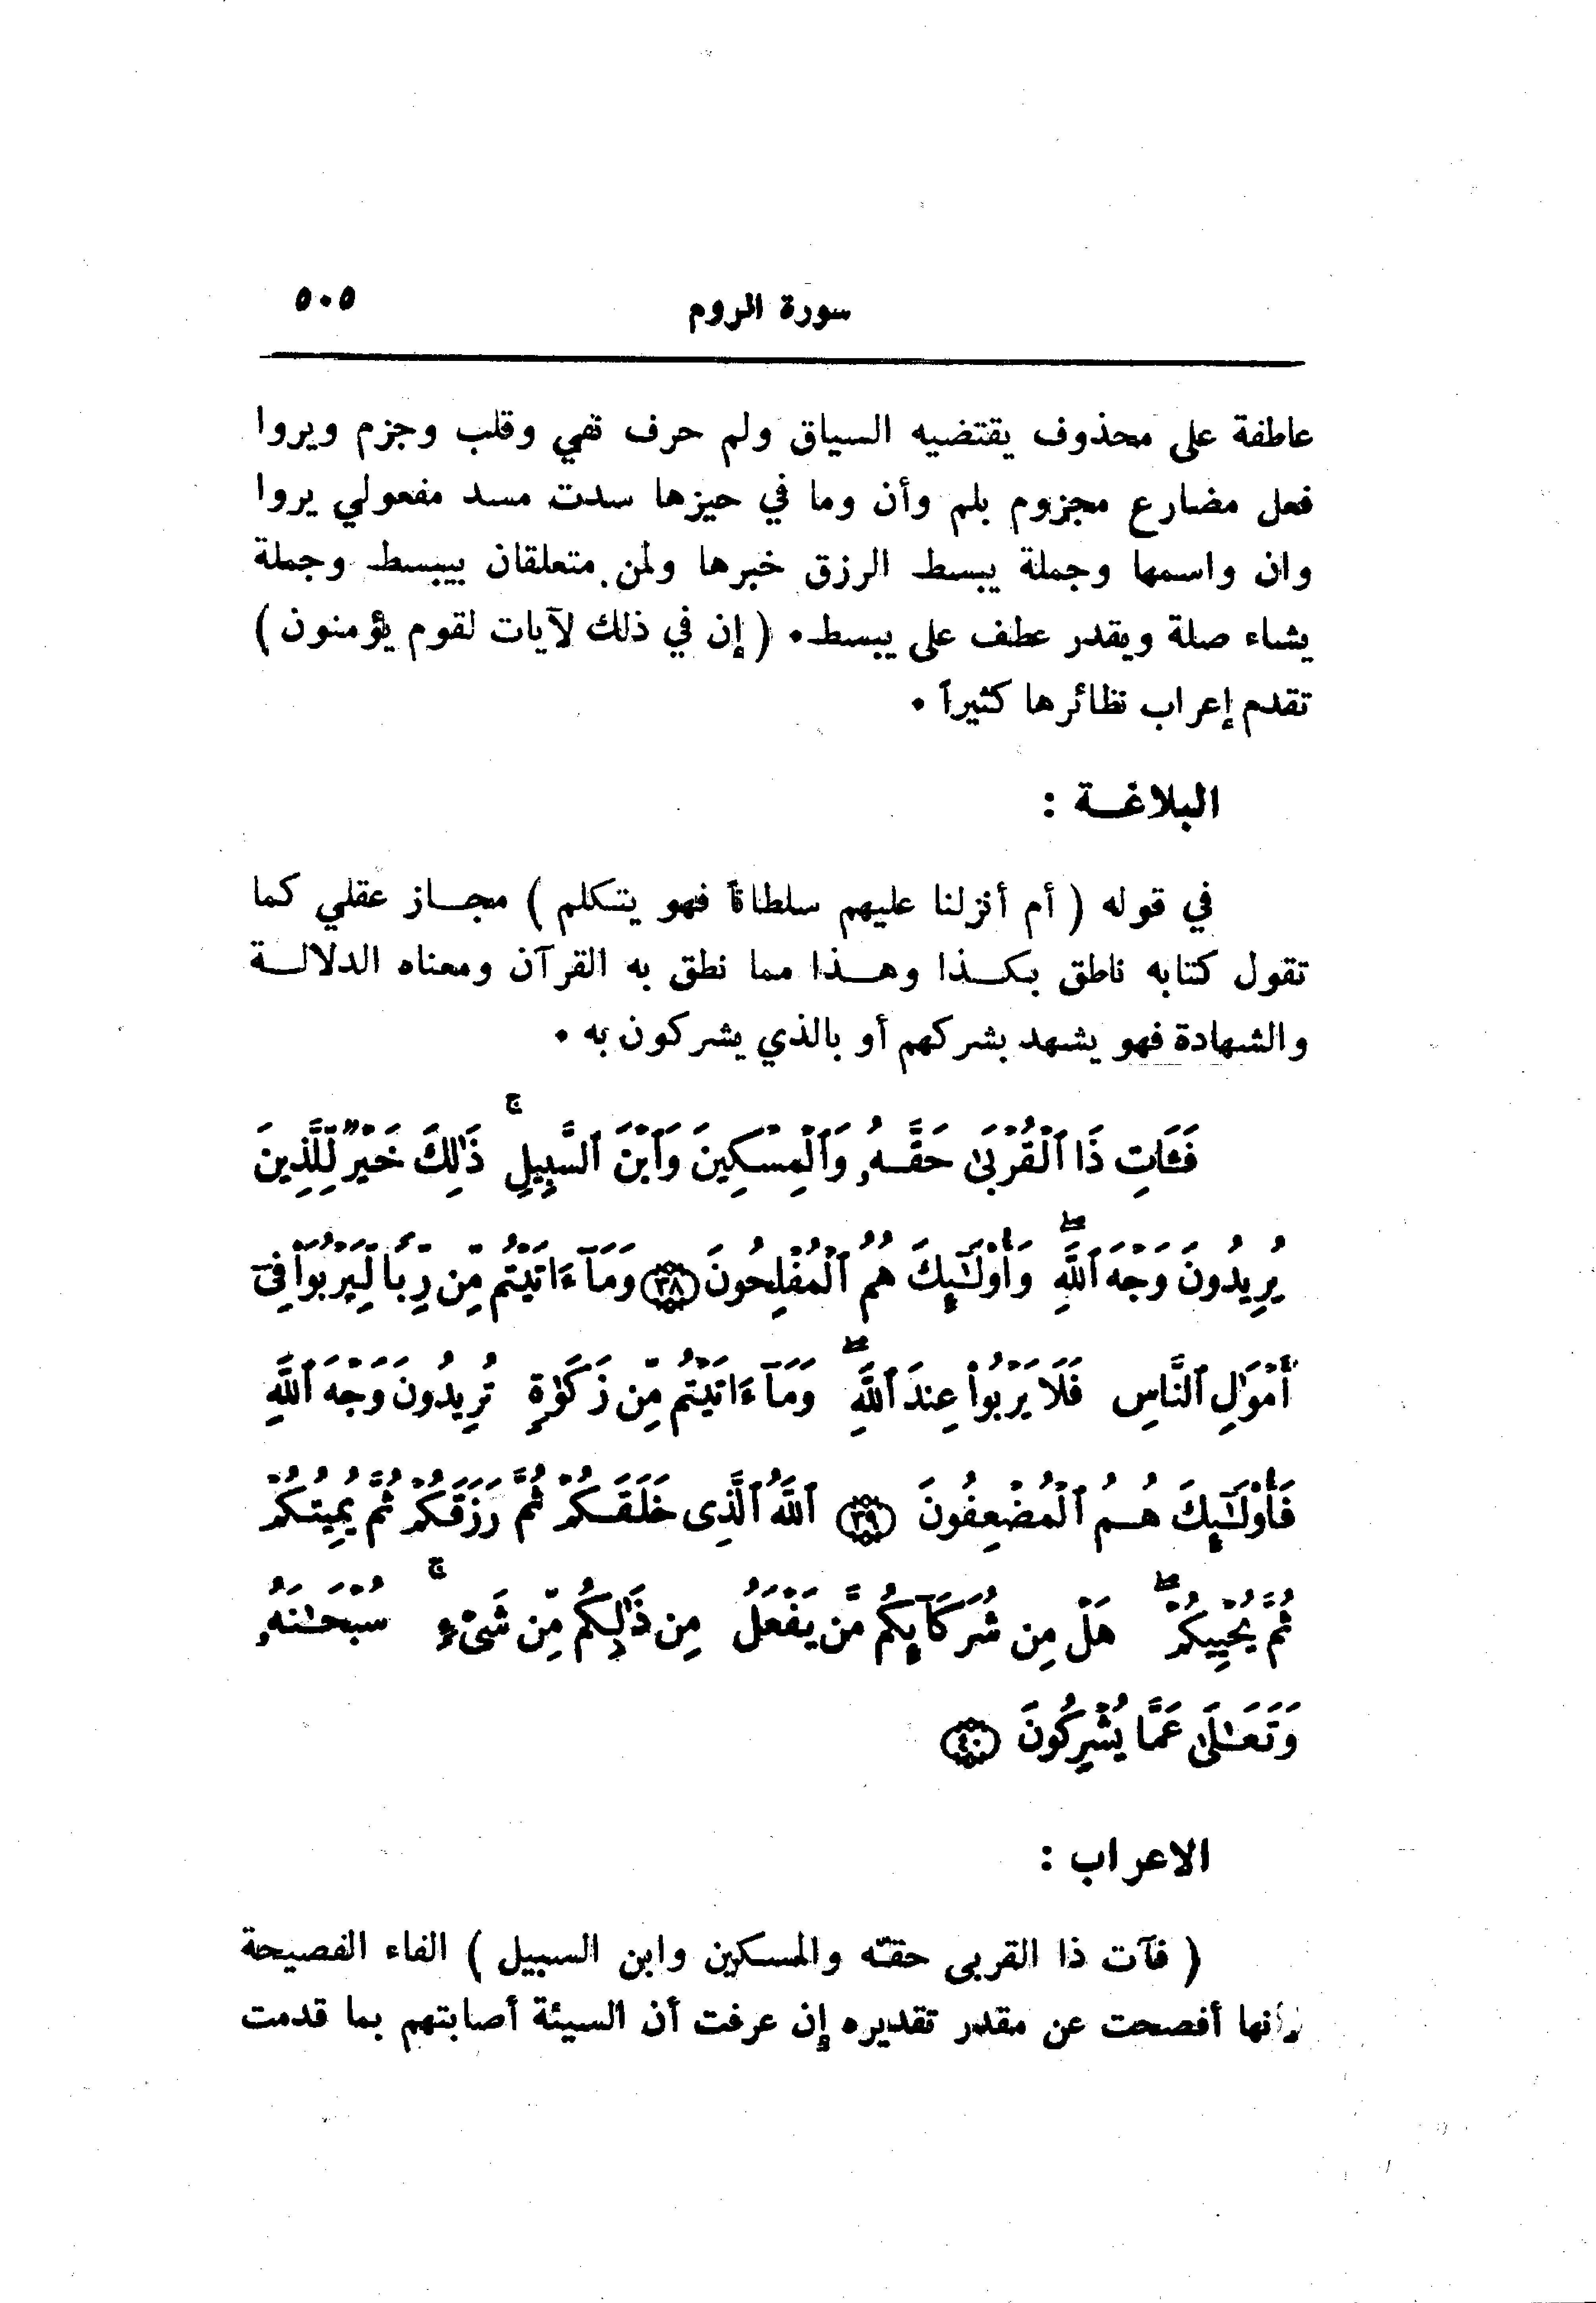 سورة الروم ٥٠٥
عاطفة على محذوف يقتضيه السياق ولم حرف نفي وقلب وجزم ويروا
فعل مضارع مجزوم بلم وأن وما في حيزها سدت مسد مفعولي يروا
وان واسمها وجملة يبسط الرزق خبرها ولمن متعلقان بيبسط وجملة
يشاء صلة ويقدر عطف على يبسط. ( إن في ذلك لآيات لقوم يؤمنون )
تقدم إعراب نظائرها كثيراً .
البلاغــة :
في قوله ( أم أنزلنا عليهم سلطاناً فهو يتكلم ) مجــاز عقلي كما
تقول كتابه ناطق بكــذا وهــذا مما نطق به القرآن ومعناه الدلالــة
والشهادة فهو يشهد بشركهم أو بالذي يشركون به .
فَـَٔاتِ ذَا ٱلْقُرْبَىٰ حَقَّهُۥ وَٱلْمِسْكِينَ وَٱبْنَ ٱلسَّبِيلِ ۚ ذَٰلِكَ خَيْرٌ لِّلَّذِينَ
يُرِيدُونَ وَجْهَ ٱللَّهِ ۖ وَأُوْلَـٰٓئِكَ هُمُ ٱلْمُفْلِحُونَ ﴿٣٨﴾ وَمَآ ءَاتَيْتُم مِّن رِّبًا لِّيَرْبُوَا۟ فِىٓ
أَمْوَٰلِ ٱلنَّاسِ فَلَا يَرْبُوا۟ عِندَ ٱللَّهِ ۖ وَمَآ ءَاتَيْتُم مِّن زَكَوٰةٍ تُرِيدُونَ وَجْهَ ٱللَّهِ
فَأُوْلَـٰٓئِكَ هُـمُ ٱلْمُضْعِفُونَ ﴿٣٩﴾ ٱللَّهُ ٱلَّذِى خَلَقَكُمْ ثُمَّ رَزَقَكُمْ ثُمَّ يُمِيتُكُمْ
ثُمَّ يُحْيِيكُمْ ۖ هَلْ مِن شُرَكَآئِكُم مَّن يَفْعَلُ مِن ذَٰلِكُم مِّن شَىْءٍ ۚ سُبْحَـٰنَهُۥ
وَتَعَـٰلَىٰ عَمَّا يُشْرِكُونَ ﴿٤٠﴾
الاعراب :
( فآت ذا القربى حقه والمسكين وابن السبيل ) الفاء الفصيحة
لأنها أفصحت عن مقدر تقديره إن عرفت أن السيئة أصابتهم بما قدمت